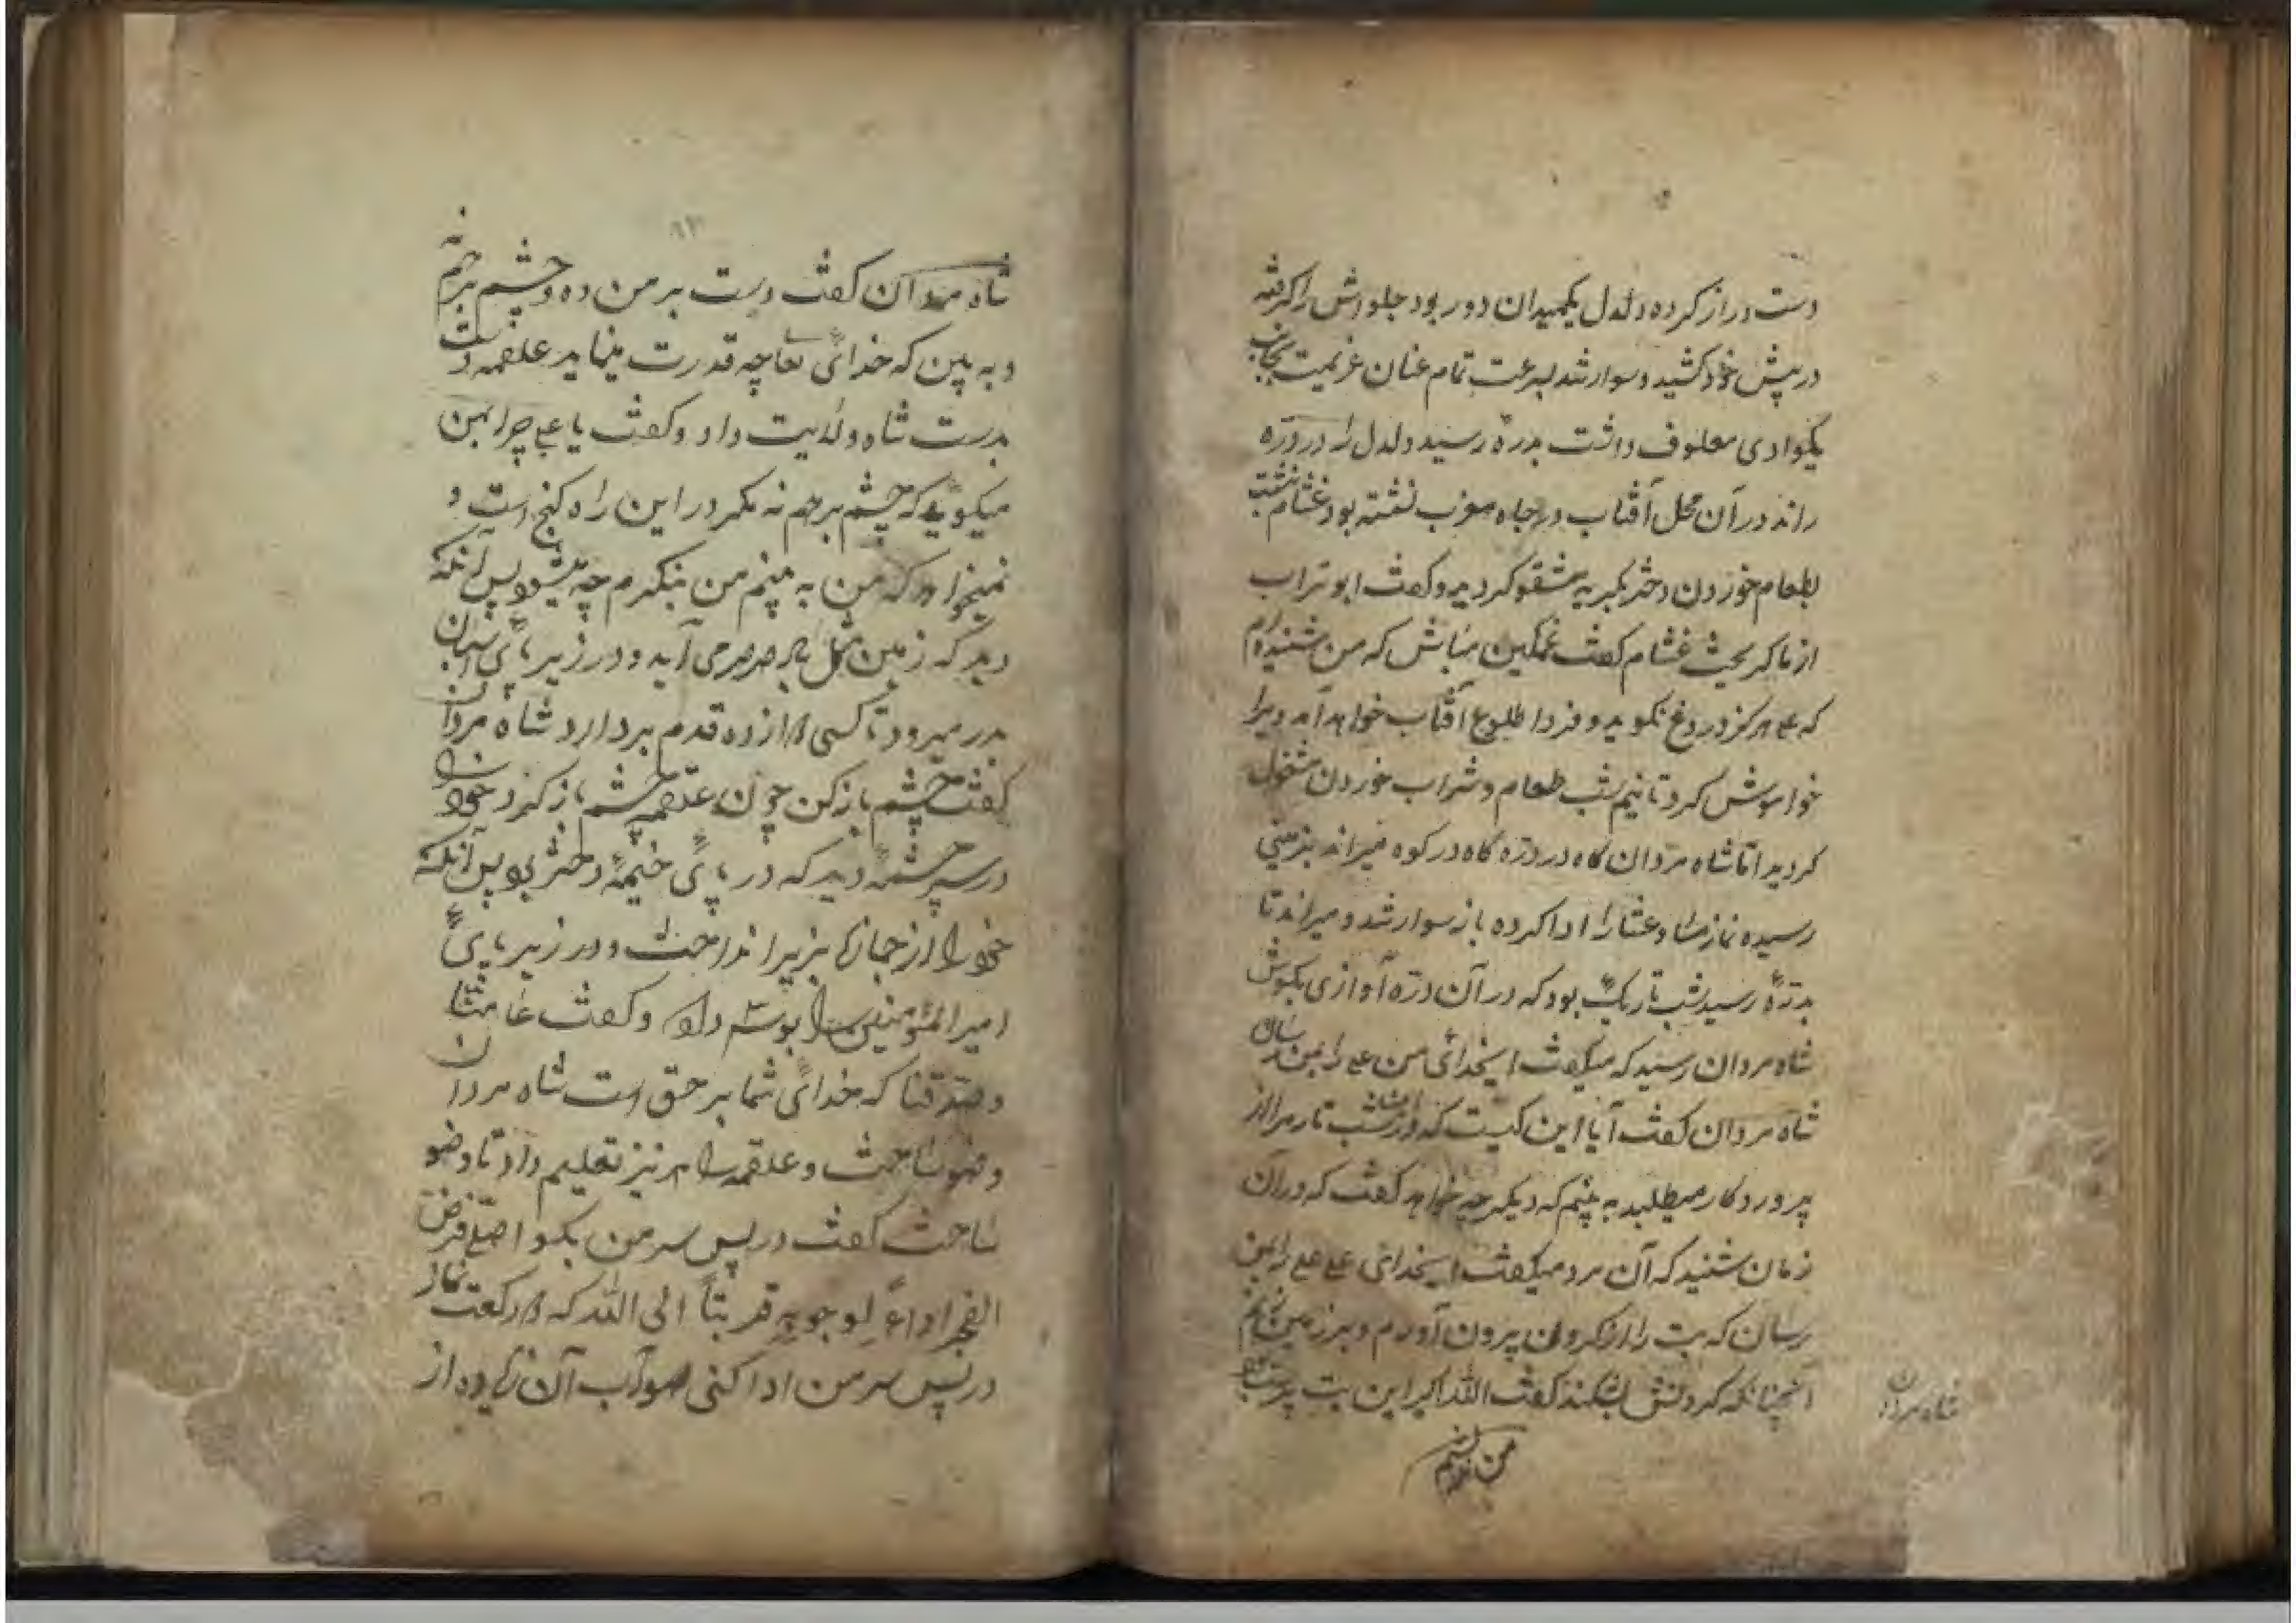 دست دراز کرده دلدل یکمیدان دور بود جلوش را گرفته
در پیش خود کشید و سوار شد بسرعت تمام عنان عزیمت بجانب
یکوادی معلوف داشت بدره رسید دلدل را در دره
راند در آن محل آفتاب در چاه مغرب نشسته بود غشام نشست
بطعام خوردن دختر بگریه کردید و گفت ابوتراب
از ما گریخت غشام گفت غمگین مباش که من شنیده‌ام
که علی هرگز دروغ نگوید و فردا طلوع آفتاب خواهد آمد ویرا
خواموش کرد تا نیم شب طعام و شراب خوردن مشغول
کردید اما شاه مردان گاه در دره گاه در کوه میراند بزمینی
رسیده نماز و عشا را ادا کرده باز سوار شد و میراند تا
بدرهٔ رسید شب تاریک بود که در آن دره آوازی بگوش
شاه مردان رسید که میگفت ایخدای من علی را بمن رسان
شاه مردان گفت آیا این کیست که در شب تار مرا از
پروردگار میطلبد به بینم که دیگر چه خواهد گفت که در آن
زمان شنید که آن مرد میگفت ایخدای علی علی را بمن
رسان که بت را از گردن بیرون آورم و بر زمین زنم
آنچنانکه گردنش بشکند گفت الله اکبر این بت پرست
شاه مردان
شاه مردان گفت دست بر من ده و چشم بر هم نه
و به بین که خدای تعا چه قدرت مینماید علقمه دست
بدست شاه ولایت داد و گفت یا علی چرا بمن
میگویی که چشم بر هم نه مگر در این راه گنج است و
نمیخواهد که من به بینم من بنگرم چه میشود پس آنکه
دید که زمین مثل باد صرصر می آید و در زیر پای اسبان
بدر میرود تا کسی را از ده قدم بردارد شاه مردان
گفت چشم باز کن چون علقمه چشم باز کرد خود را
در سر چشمهٔ دید که در پای خیمهٔ دختر بود پس آنکه
خود را از جمازه بزیر انداخت و در زیر پای
امیر المؤمنین را بوسه داد و گفت عامنا
و صدقنا که خدای شما بر حق است شاه مردان
وضو ساخت و علقمه را هم نیز تعلیم داد تا وضو
ساخت گفت در پس سر من بگو اصلی فرض
الفجر اداءً لوجوبه قربتاً الی الله که رکعت نماز
در پس سر من ادا کنی صواب آن زیاده از